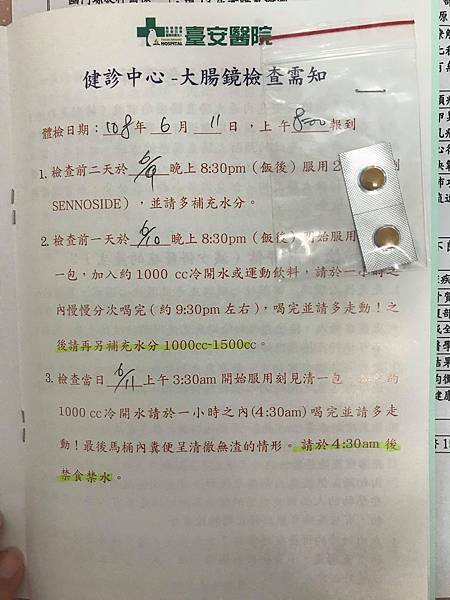 臺安醫院
HOSPITAL
健診中心-大腸鏡檢查需知
體檢日期：108年 6 月 11 日，上午 8:00 報到
1. 檢查前二天於 6/9 晚上 8:30pm（飯後）服用 2
SENNOSIDE），並請多補充水分。
2. 檢查前一天於 6/10 晚上 8:30pm（飯後）開始服用
一包，加入約 1000 cc冷開水或運動飲料，請於一小時之
內慢慢分次喝完（約 9:30pm 左右），喝完並請多走動！之
後請再另補充水分 1000cc-1500cc。
3. 檢查當日 6/11 上午 3:30am 開始服用刻見清一包
1000 cc 冷開水請於一小時之內(4:30am)喝完並請多走
動！最後馬桶內糞便呈清徹無渣的情形。請於 4:30am 後
禁食禁水。